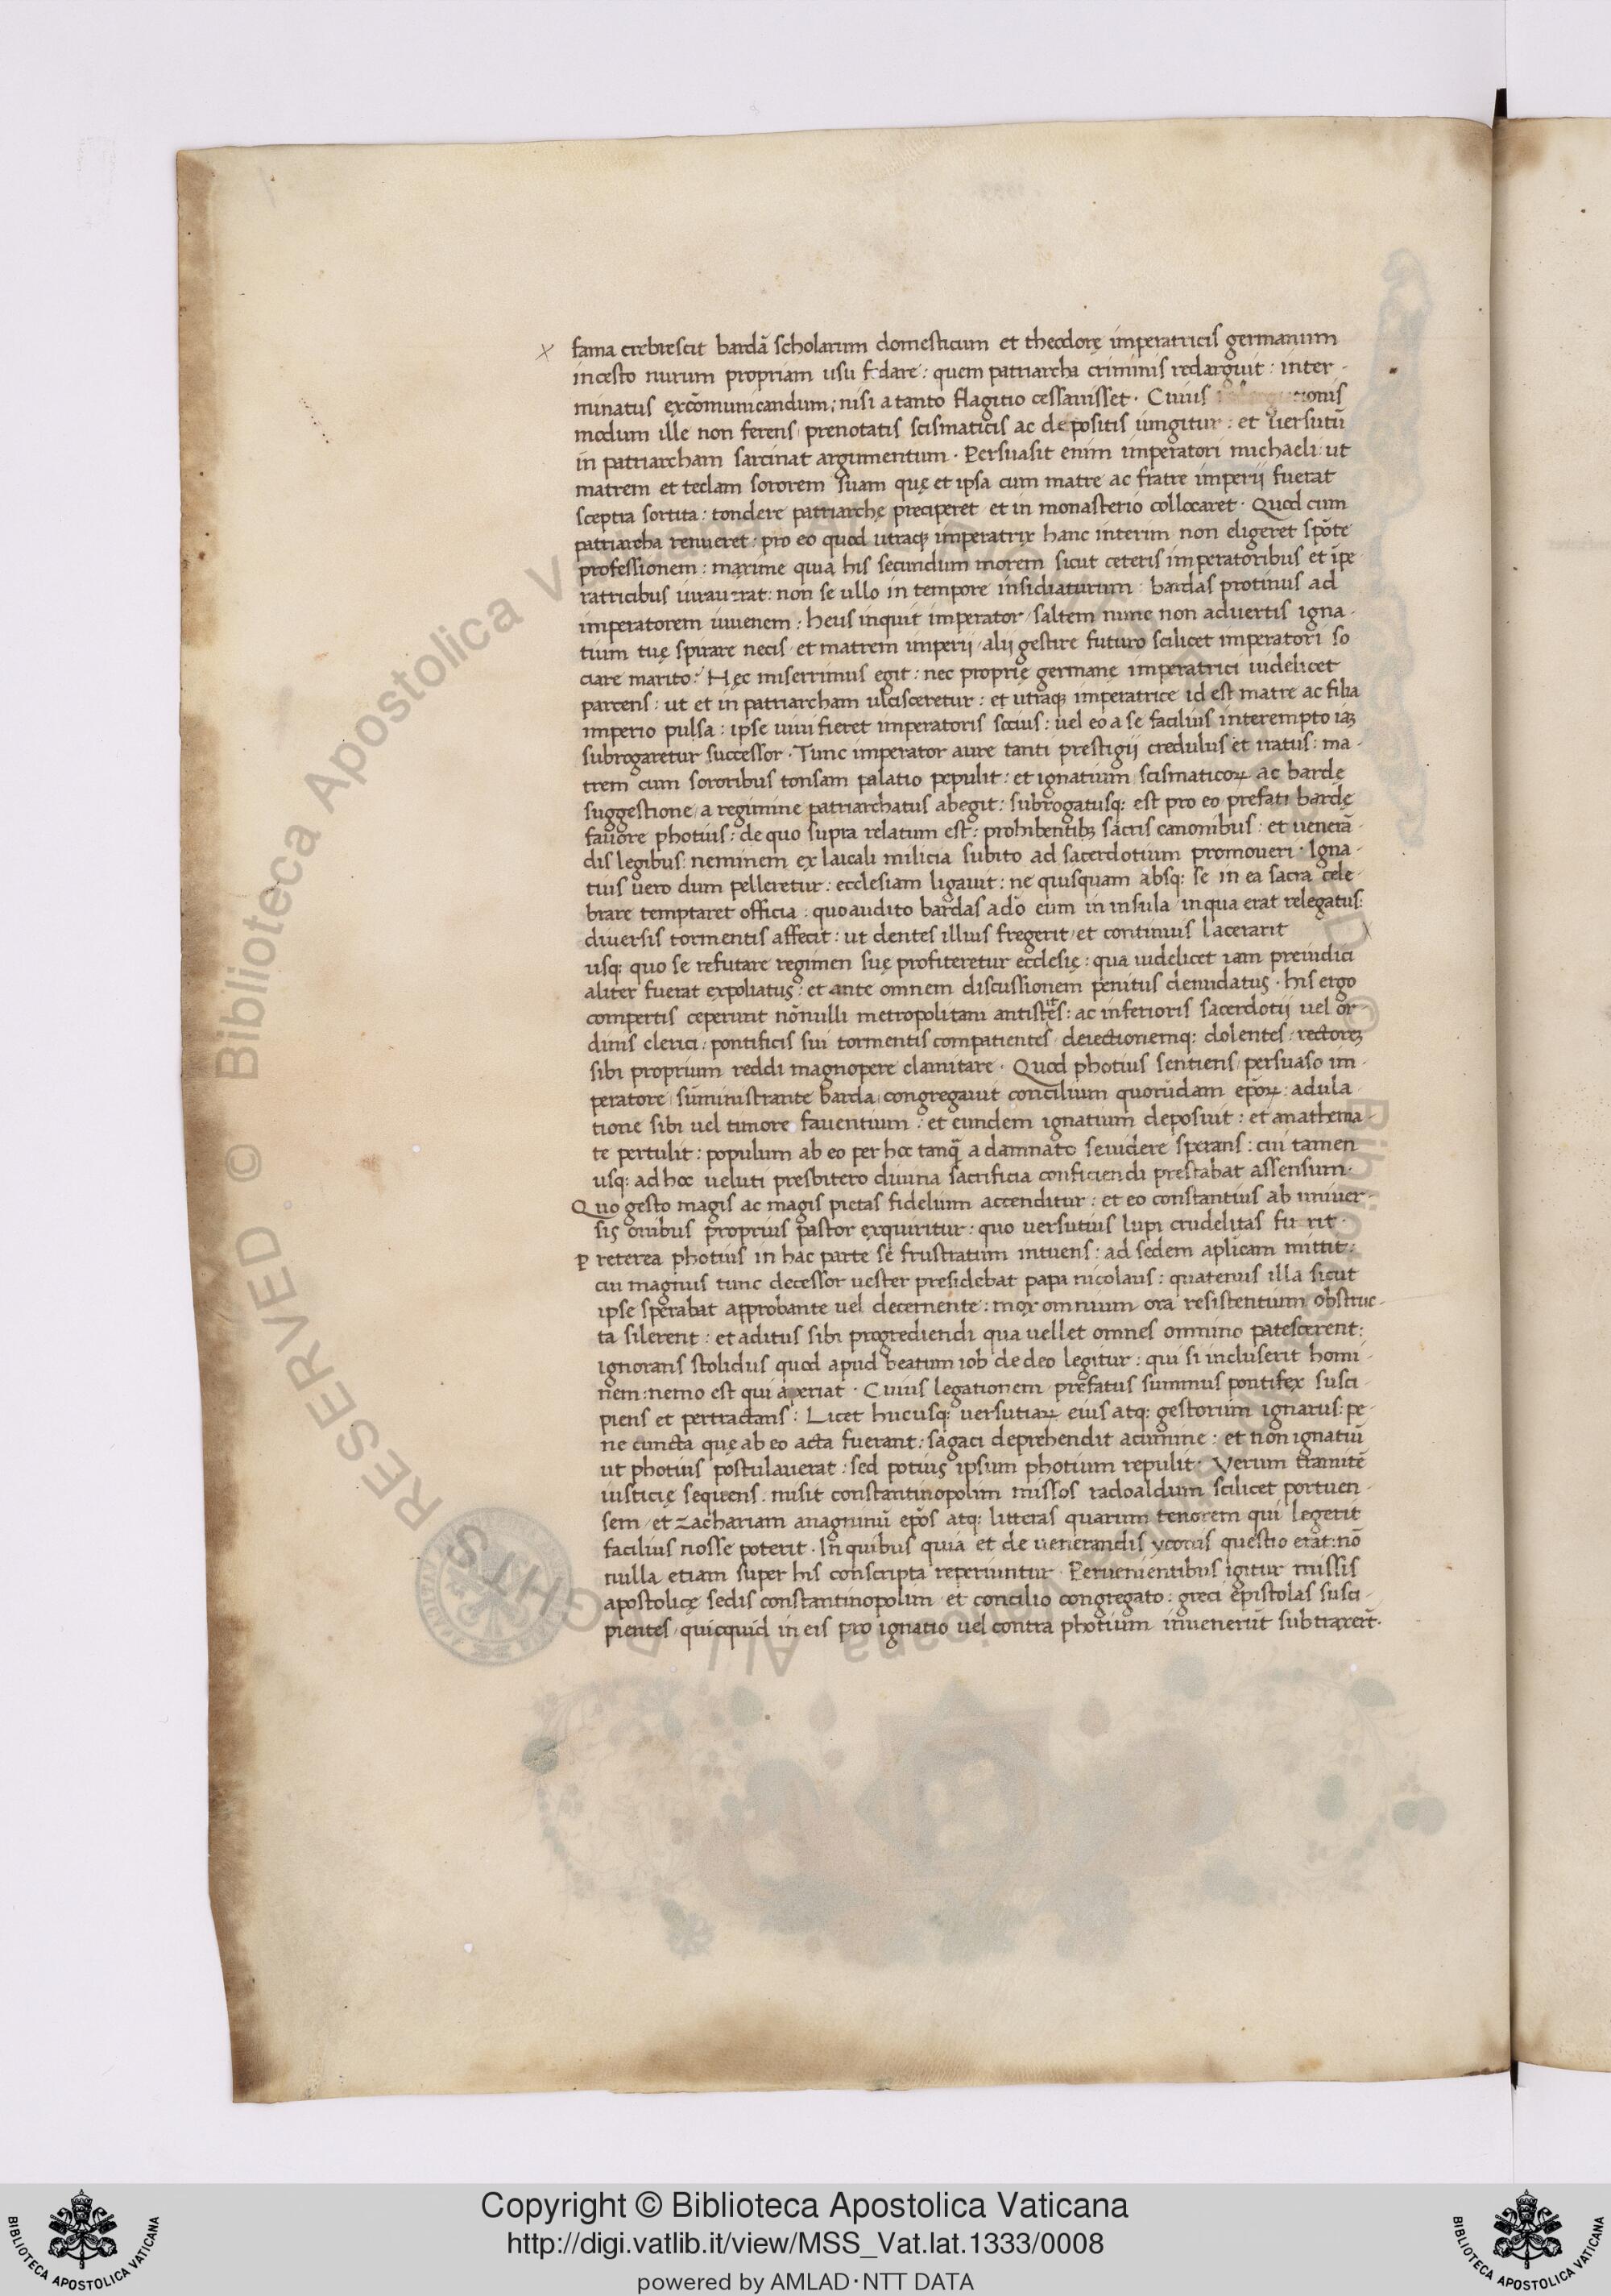 fama crebrescit bardā scholarum domesticum et theodorę imperatricis germanum
incesto nurum propriam usu fędare: quem patriarcha criminis redarguit: inter-
minatus excōmunicandum; nisi a tanto flagitio cessauisset. Cuius
modum ille non ferens prenotatis scismaticis ac depositis iungitur: et uersutū
in patriarcham sarcinat argumentum. Persuasit enim imperatori michaeli: ut
matrem et teclam sororem suam quę et ipsa cum matre ac fratre imperii fuerat
sceptra sortita: tondere patriarchę preciperet et in monasterio collocaret. Quod cum
patriarcha renueret: pro eo quod utraqꝫ imperatrix hanc interim non eligeret spōte
professionem: maxime quia his secundum morem sicut ceteris imperatoribus et īpe
ratricibus iurauerat: non se ullo in tempore insidiaturum: bardas protinus ad
imperatorem iuuenem: heus inquit imperator saltem nunc non aduertis igna-
tium tuę spirare necis et matrem imperii alii gestire futuro scilicet imperatori so
ciare marito: Hęc miserrimus egit: nec proprię germanę imperatrici uidelicet
parcens: ut et in patriarcham ulcisceretur: et utraqꝫ imperatrice id est matre ac filia
imperio pulsa: ipse uiui fieret imperatoris socius: uel eo a se facilius interempto iaꝫ
subrogaretur successor. Tunc imperator aure tanti prestigii credulus et iratus: ma-
trem cum sororibus tonsam palatio pepulit: et ignatium scismaticoꝝ ac bardę
suggestione a regimine patriarchatus abegit: subrogatusq: est pro eo prefati bardę
fauore photius: de quo supra relatum est: prohibentibꝫ sacris canonibus: et uenerā-
dis legibus: neminem ex laicali milicia subito ad sacerdotium promoueri. Igna-
tius uero dum pelleretur: ecclesiam ligauit: ne quisquam absq: se in ea sacra cele-
brare temptaret officia: quo audito bardas adō eum in insula in qua erat relegatus:
diuersis tormentis affecit: ut dentes illius fregerit et continuis lacerarit
usq: quo se refutare regimen suę profiteretur ecclesię: qua uidelicet iam preiudici
aliter fuerat expoliatus: et ante omnem discussionem penitus denudatus. his ergo
compertis ceperunt nōnulli metropolitani antistites: ac inferioris sacerdotii uel or-
dinis clerici: pontificis sui tormentis compatientes deiectionemq: dolentes rectoreꝫ
sibi proprium reddi magnopere clamitare. Quod photius sentiens persuaso im-
peratore sūministrante barda congregauit concilium quorūdam epōꝝ: adula-
tione sibi uel timore fauentium: et eundem ignatium deposuit: et anathema-
te pertulit: populum ab eo per hoc tanq̄ a damnato seuidere sperans: cui tamen
usq: ad hoc ueluti presbitero diuina sacrificia conficiendi prestabat assensum.
Quo gesto magis ac magis pietas fidelium accenditur: et eo constantius ab uniuer-
sis ouibus proprius pastor exquiritur: quo uersutius lupi crudelitas furit.
Preterea photius in hac parte se frustratum intuens: ad sedem aplicam mittit:
cui magnus tunc decessor uester presidebat papa nicolaus: quatenus illa sicut
ipse sperabat approbante uel decernente: mox omnium ora resistentium obstruc-
ta silerent: et aditus sibi progrediendi qua uellet omnes omnino patescerent:
ignorans stolidus quod apud beatum iob de deo legitur: qui si incluserit homi-
nem: nemo est qui aperiat. Cuius legationem prefatus summus pontifex susci-
piens et pertractans: Licet hucusq: uersutiaꝝ eius atq: gestorum ignarus: pe-
ne cuncta quę ab eo acta fuerant: sagaci deprehendit acumine: et non ignatiū
ut photius postulauerat: sed potius ipsum photium repulit. Verum tramitē
iusticię sequens. misit constantinopolim missos radoaldum scilicet portuen-
sem et zachariam anagninū epōs atq: litteras quarum tenorem qui legerit
facilius nosse poterit. In quibus quia et de uenerandis yconis questio erat: nō
nulla etiam super his conscripta reperiuntur. Peruenientibus igitur missis
apostolicę sedis constantinopolim et concilio congregato: greci epistolas susci-
pientes quicquid in eis pro ignatio uel contra photium inuenerūt subtraxerūt.
© Biblioteca Apostolica Vaticana ALL RIGHTS RESERVED
Copyright © Biblioteca Apostolica Vaticana
http://digi.vatlib.it/view/MSS_Vat.lat.1333/0008
powered by AMLAD·NTT DATA
BIBLIOTECA APOSTOLICA VATICANA
BIBLIOTECA APOSTOLICA VATICANA